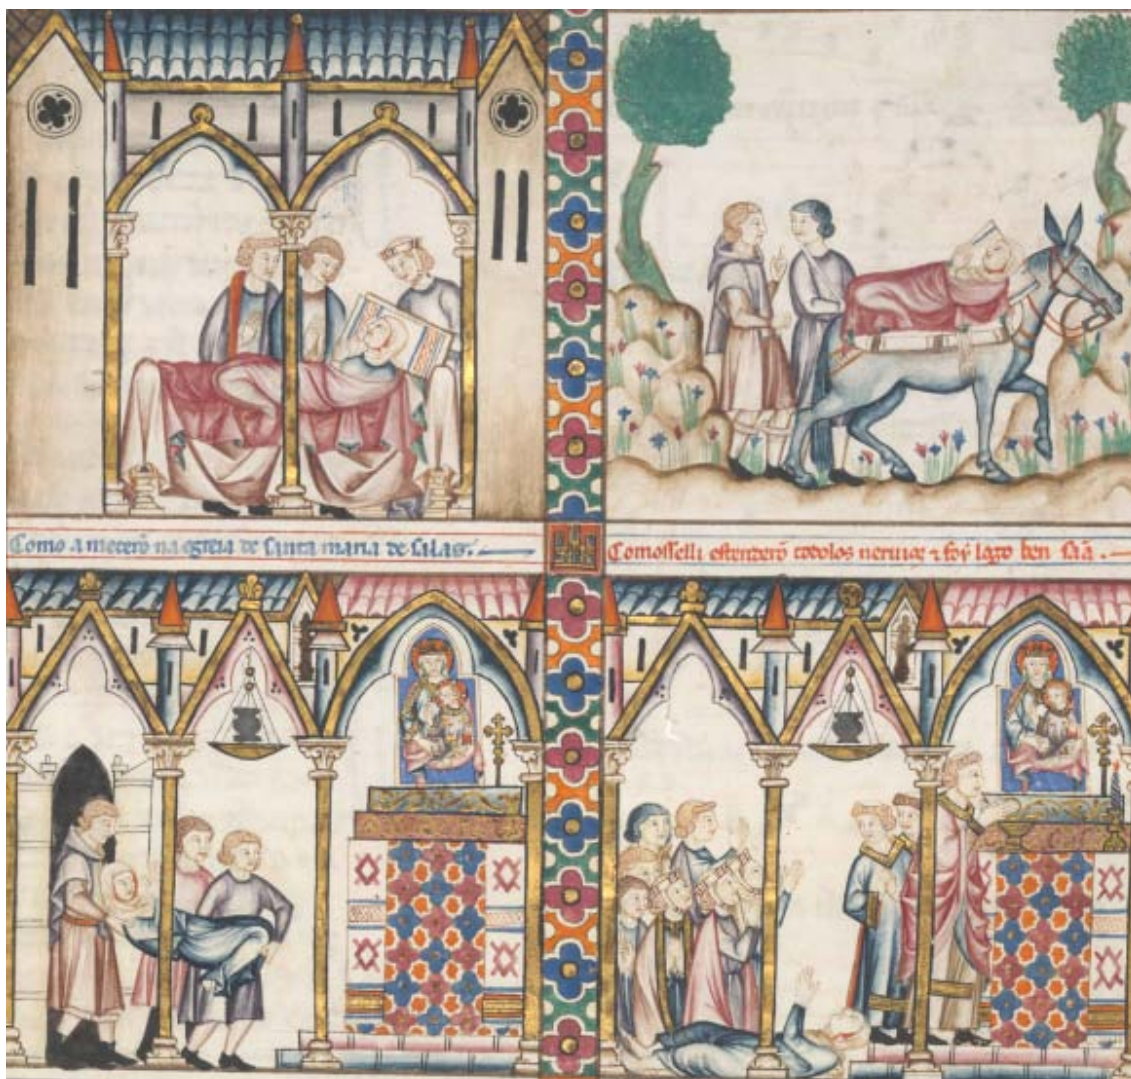 Como a meterõ na egreia de santa maria de salas.
Comosselli estenderõ todolos neruios ⁊ foy logo ben sãa.